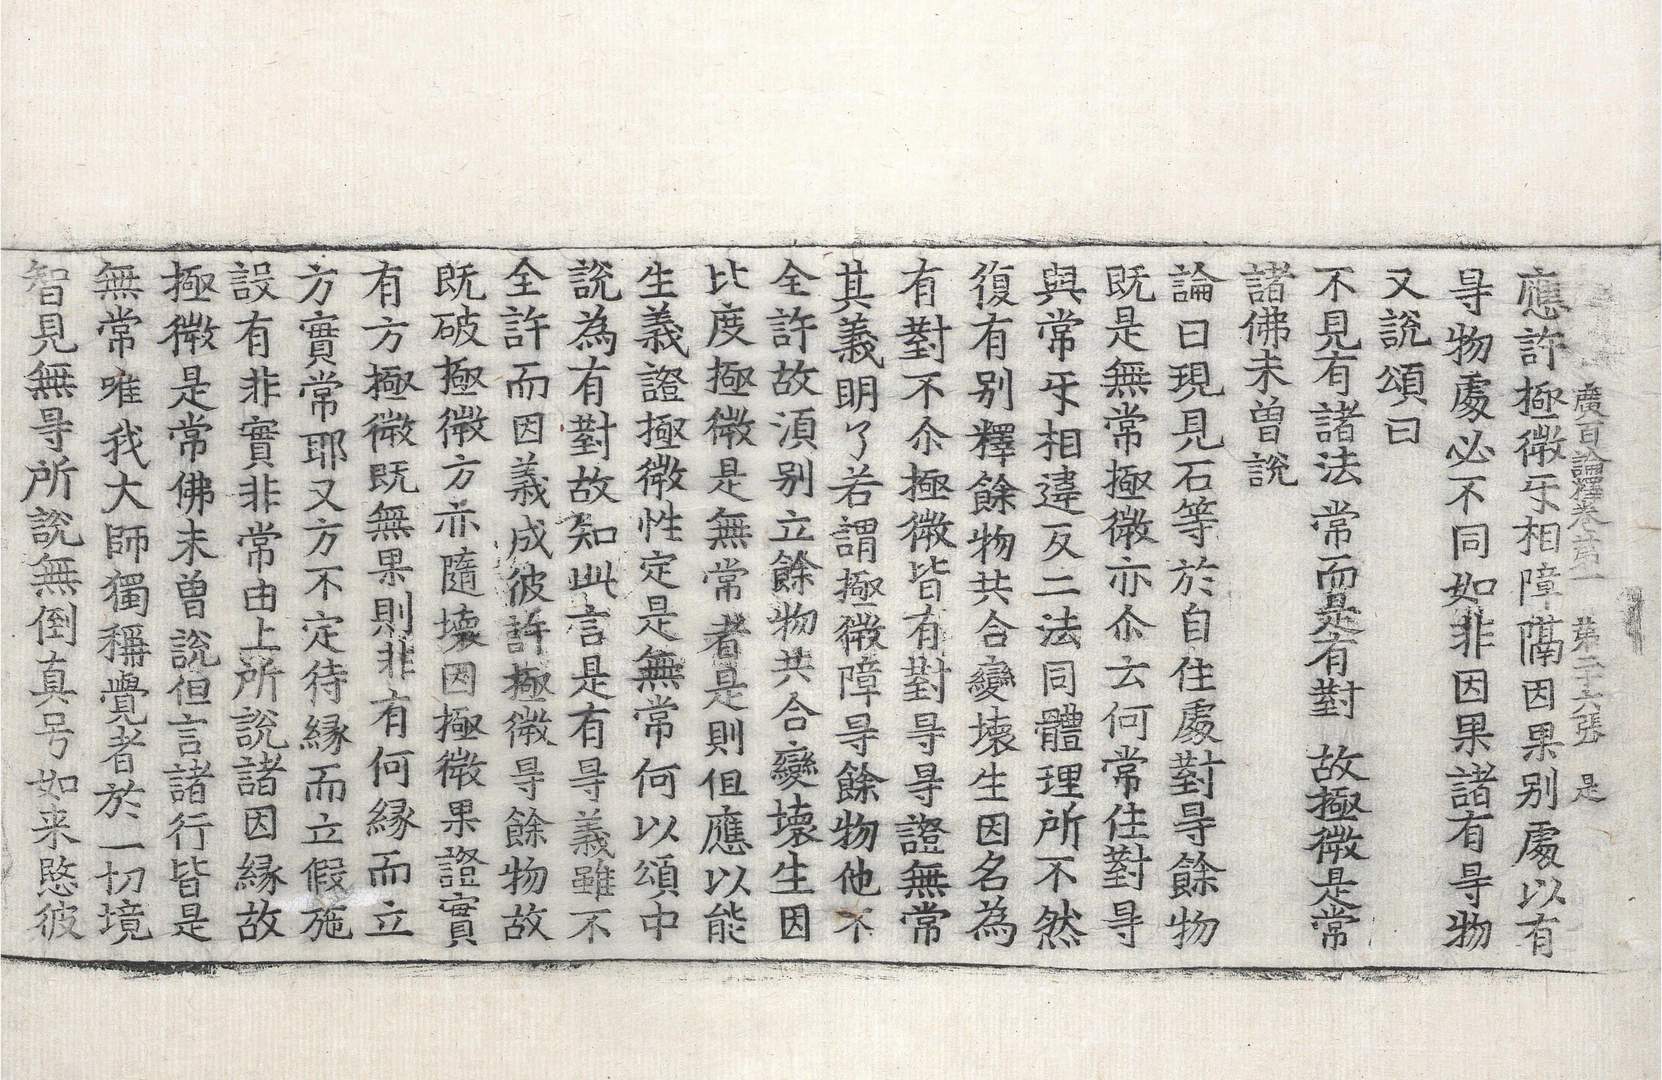 廣百論釋卷第一　第二十六張　是
應許極微㸦相障隔因果別處以有
㝵物處必不同如非因果諸有㝵物
又說頌曰
不見有諸法　常而是有對　故極微是常
諸佛未曾說
論曰現見石等於自住處對㝵餘物
既是無常極微亦尒云何常住對㝵
與常㸦相違反二法同體理所不然
復有別釋餘物共合變壞生因名為
有對不尒極微皆有對㝵㝵證無常
其義明了若謂極微障㝵餘物他不
全許故湏別立餘物共合變壞生因
比度極微是無常者是則但應以能
生義證極微性定是無常何以頌中
說為有對故知此言是有㝵義雖不
全許而因義成彼許極微㝵餘物故
既破極微方亦隨壞因極微果證實
有方極微既無果則非有何緣而立
方實常耶又方不定待緣而立假施
設有非實非常由上所說諸因緣故
極微是常佛未曾說但言諸行皆是
無常唯我大師獨稱覺者於一切境
智見無㝵所說無倒真号如来愍彼